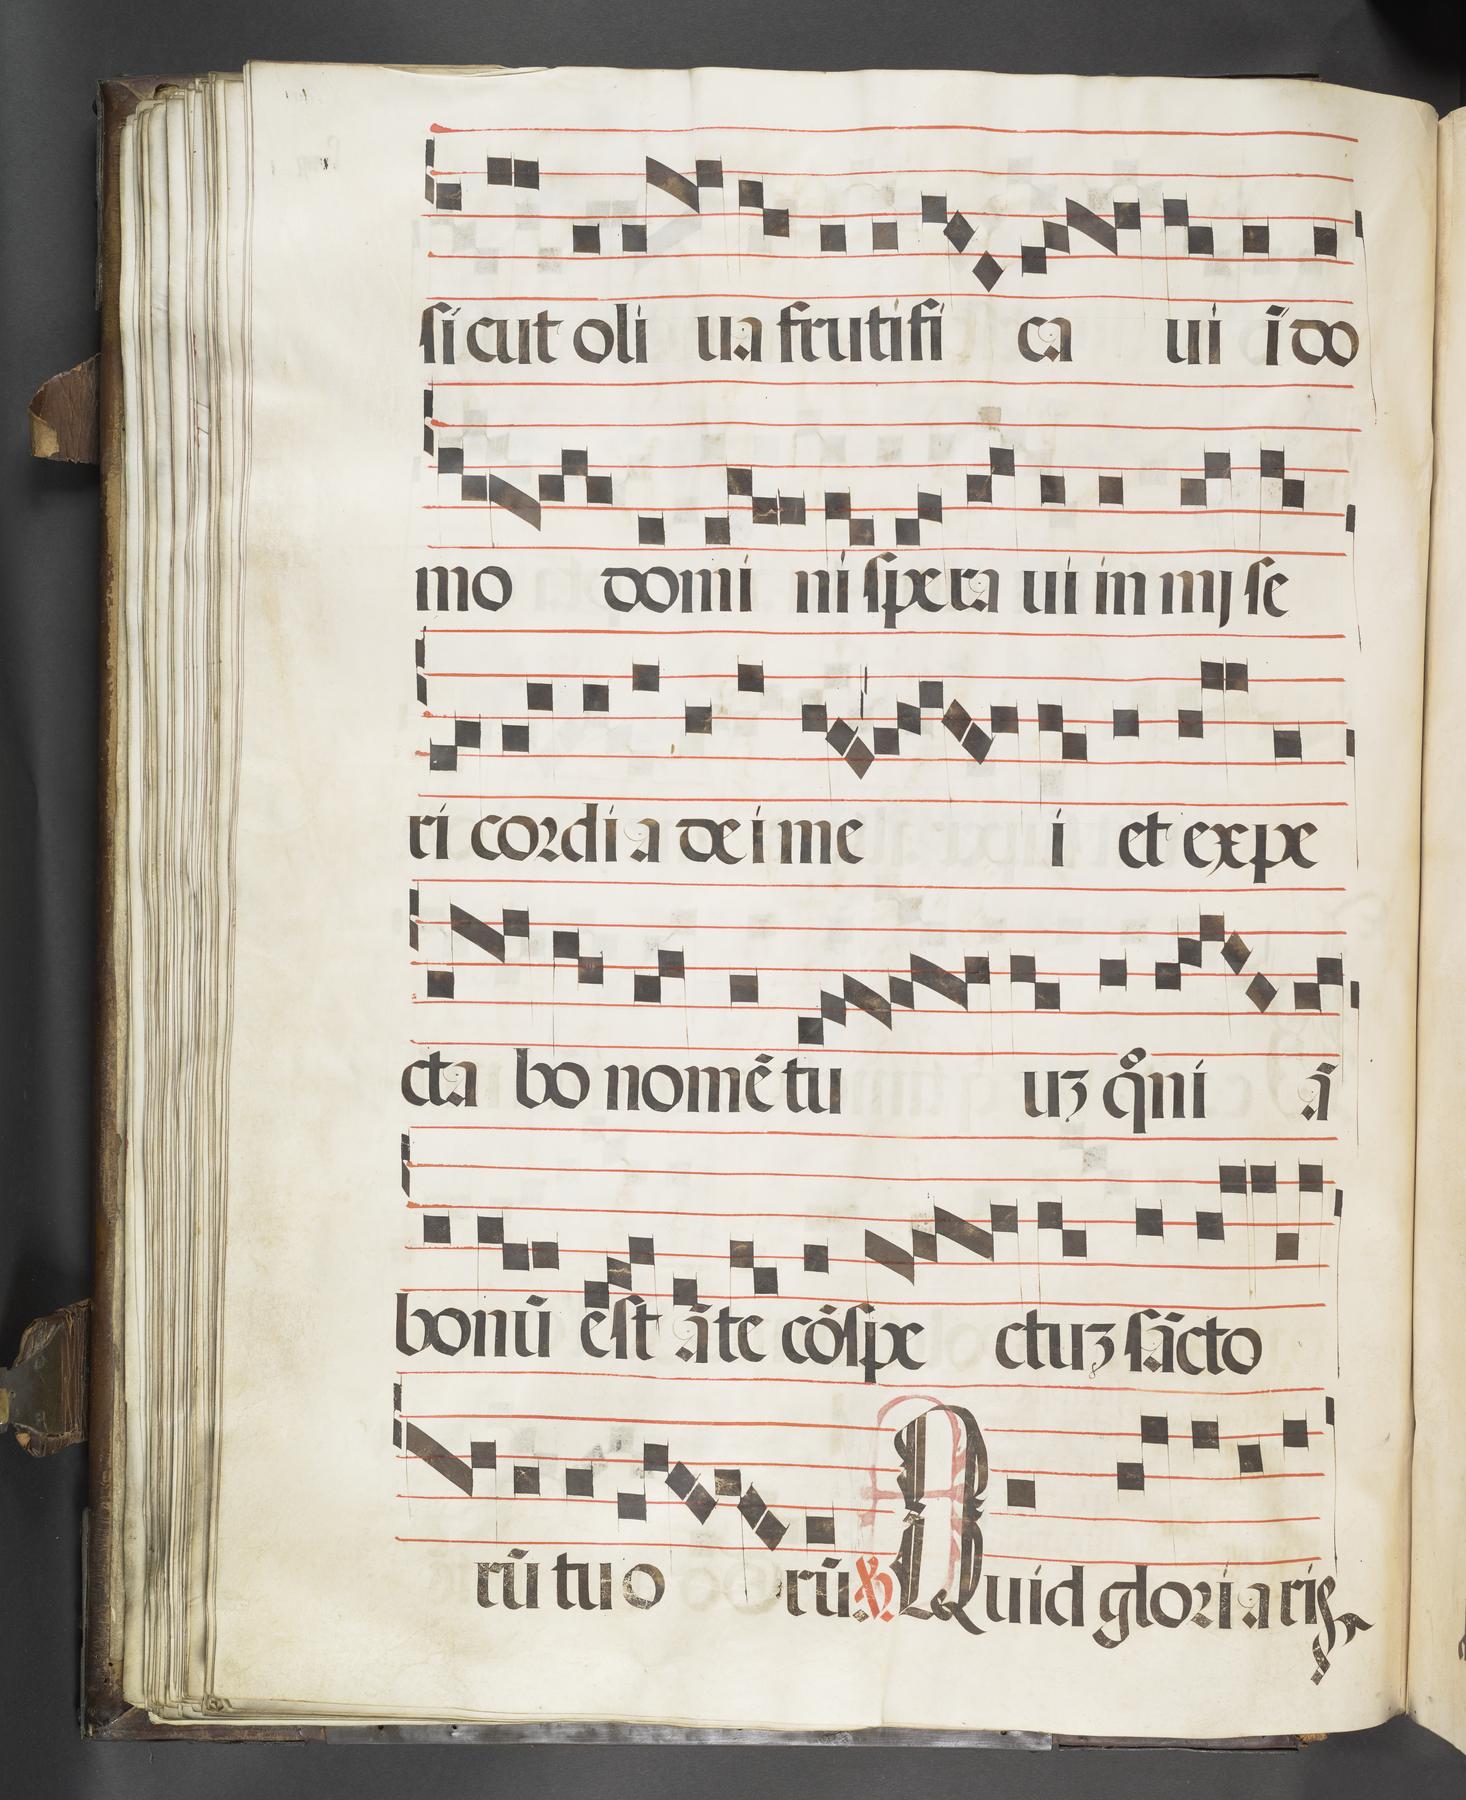 sicut oli ua frutifi ca ui ī do
mo domi ni spera ui in mj se
ri cordi a dei me i et expe
cta bo nomē tu uʒ qͦni ā
bonū est āte cōspe ctuʒ sācto
rū tu o rū ℟ Quid glori a ris